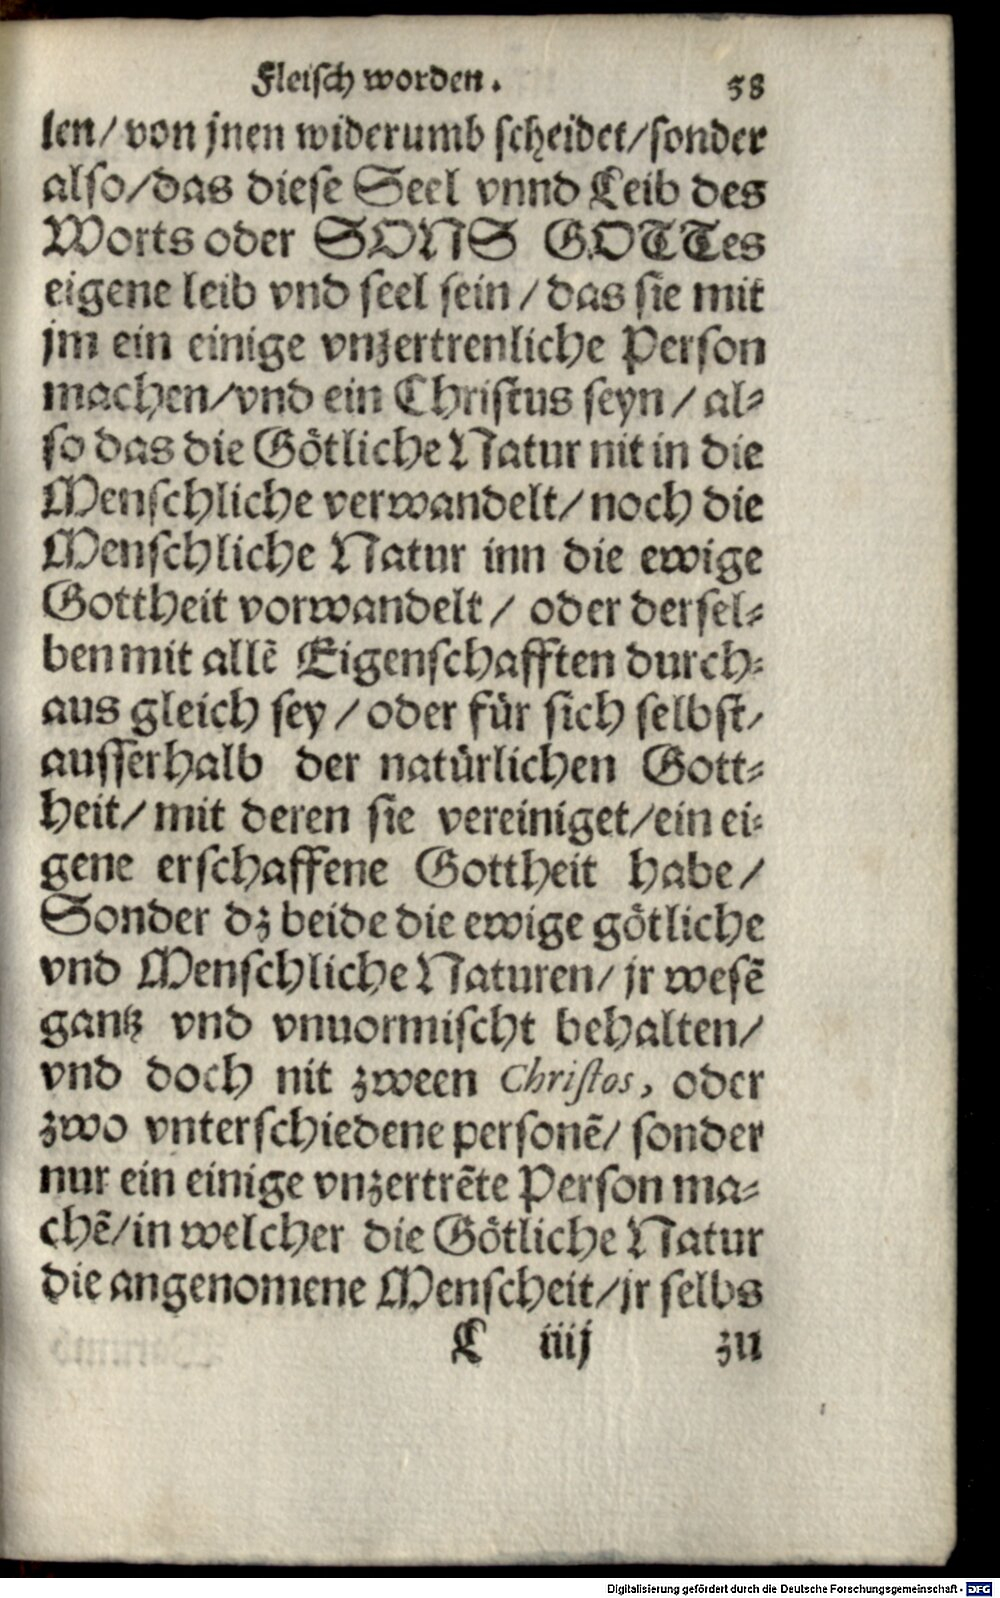 Fleisch worden. 58
len/ von jnen widerumb scheidet/ sonder
also/ das diese Seel vnnd Leib des
Worts oder SONS GOTTes
eigene leib vnd seel sein / das sie mit
jm ein einige vnzertrenliche Person
machen/ vnd ein Christus seyn / al⸗
so das die Götliche Natur nit in die
Menschliche verwandelt/ noch die
Menschliche Natur inn die ewige
Gottheit vorwandelt / oder dersel⸗
ben mit allē Eigenschafften durch⸗
aus gleich sey / oder für sich selbst/
ausserhalb der natürlichen Gott⸗
heit/ mit deren sie vereiniget/ ein ei⸗
gene erschaffene Gottheit habe/
Sonder dz beide die ewige götliche
vnd Menschliche Naturen/ jr wesē
gantz vnd vnuormischt behalten/
vnd doch nit zween Christos, oder
zwo vnterschiedene personē/ sonder
nur ein einige vnzertrēte Person ma⸗
chē/ in welcher die Götliche Natur
die angenomene Menscheit/ jr selbs
L iiij zu
Digitalisierung gefördert durch die Deutsche Forschungsgemeinschaft - DFG